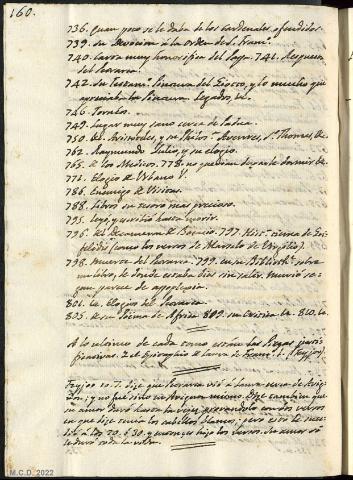 160.
736. Quan poco se le daba de los Cardenales ofendidos.
739. Su devocion a la Orden de S. Fran.co
740. Carta muy honorifica del Papa. 741. Respuesta
del Petrarca.
742. Su Testam.to Pintura del Giotto, y lo mucho que
apreciaba la Pintura. Legados, &c.
746.
749. Lugar muy sano cerca de Padua.
750. de Aristoteles, y su Philos. Averroes, S.to Thomas, &c.
762. Raymundo Lulio, y su elogio.
765. de los Medicos. 778. no podian dexarle dormir &c.
771. Elogio de Urbano V.
786. Enemigo de Visitas.
788. Libros su tesoro mas precioso.
795. leyó, y escribió hasta morir.
796. del Decameron de Bocacio. 797. Hist.a tierna de
(como los versos de Marcelo de Virgilio).
798. Muerte del Petrarca. 799. en su Biblioth. sobre
un libro, de donde estaba dias sin salir. Murió
parece de apoplegia.
801. &c. Elogios del Petrarca.
805. de su Poema de Africa 809. su Critica &c. 810. &c.
A lo ultimo de cada tomo estan las Piezas justi-
ficativas. Z el Epitaphio de Laura de Fran.co I. (Feyjoo).
Feyjoo to. 7. dize que Petrarca vió a Laura cerca de Aviñ-
on; y no fue sino en Aviñon mismo. Dize tambien que
su amor duró hasta la vejez, provandolo con dos versos
en que dize tenia los cabellos blancos; pero esto le
a los 20. ó 30. y entonces hizo los versos. Su amor si
le duró toda la vida.
M.C.D. 2022